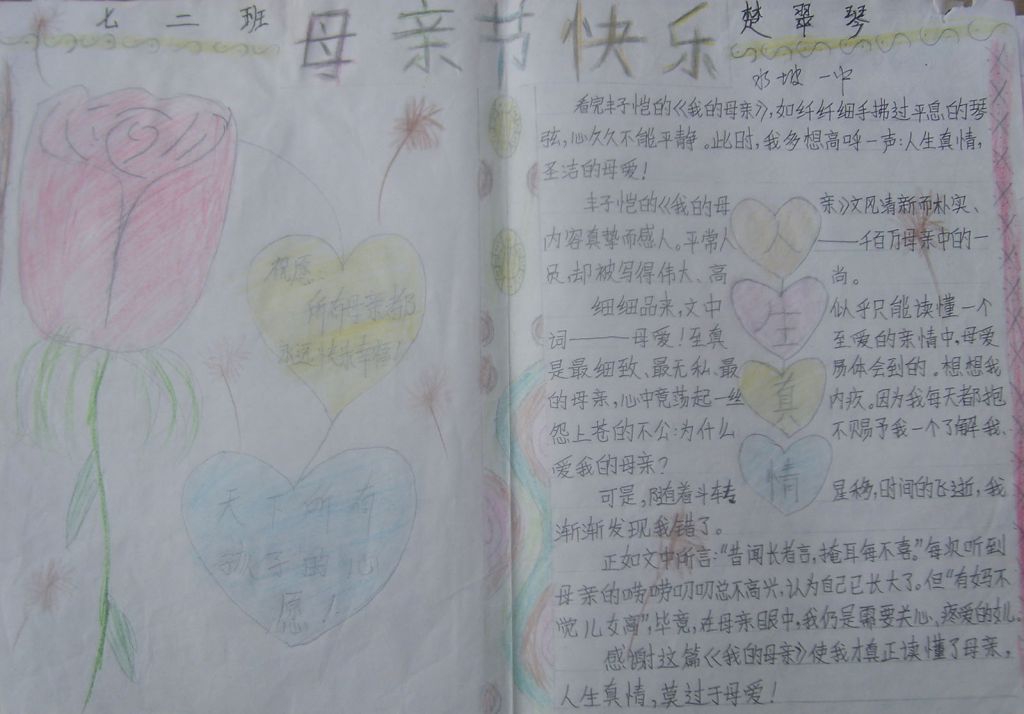 七二班
母亲节快乐
楚翠琴
水坡一中
祝愿:
所有母亲都
永远快乐幸福!
天下所有
孩子的心
愿!
看完丰子恺的《我的母亲》,如纤纤细手拂过平息的琴
弦,心久久不能平静。此时,我多想高呼一声:人生真情,
圣洁的母爱!
丰子恺的《我的母亲》文风清新而朴实、
内容真挚而感人。平常人——千百万母亲中的一
员,却被写得伟大、高尚。
细细品来,文中似乎只能读懂一个
词——母爱!至真至爱的亲情中,母爱
是最细致、最无私、最易体会到的。想想我
的母亲,心中竟荡起一丝内疚。因为我每天都抱
怨上苍的不公:为什么不赐予我一个了解我、
爱我的母亲?
可是,随着斗转星移,时间的飞逝,我
渐渐发现我错了。
正如文中所言:“昔闻长者言,掩耳每不喜。”每次听到
母亲的唠唠叨叨总不高兴,认为自己已长大了。但“有妈不
觉儿女高”,毕竟,在母亲眼中,我仍是需要关心、疼爱的女儿。
感谢这篇《我的母亲》使我才真正读懂了母亲,
人生真情,莫过于母爱!
人
生
真
情